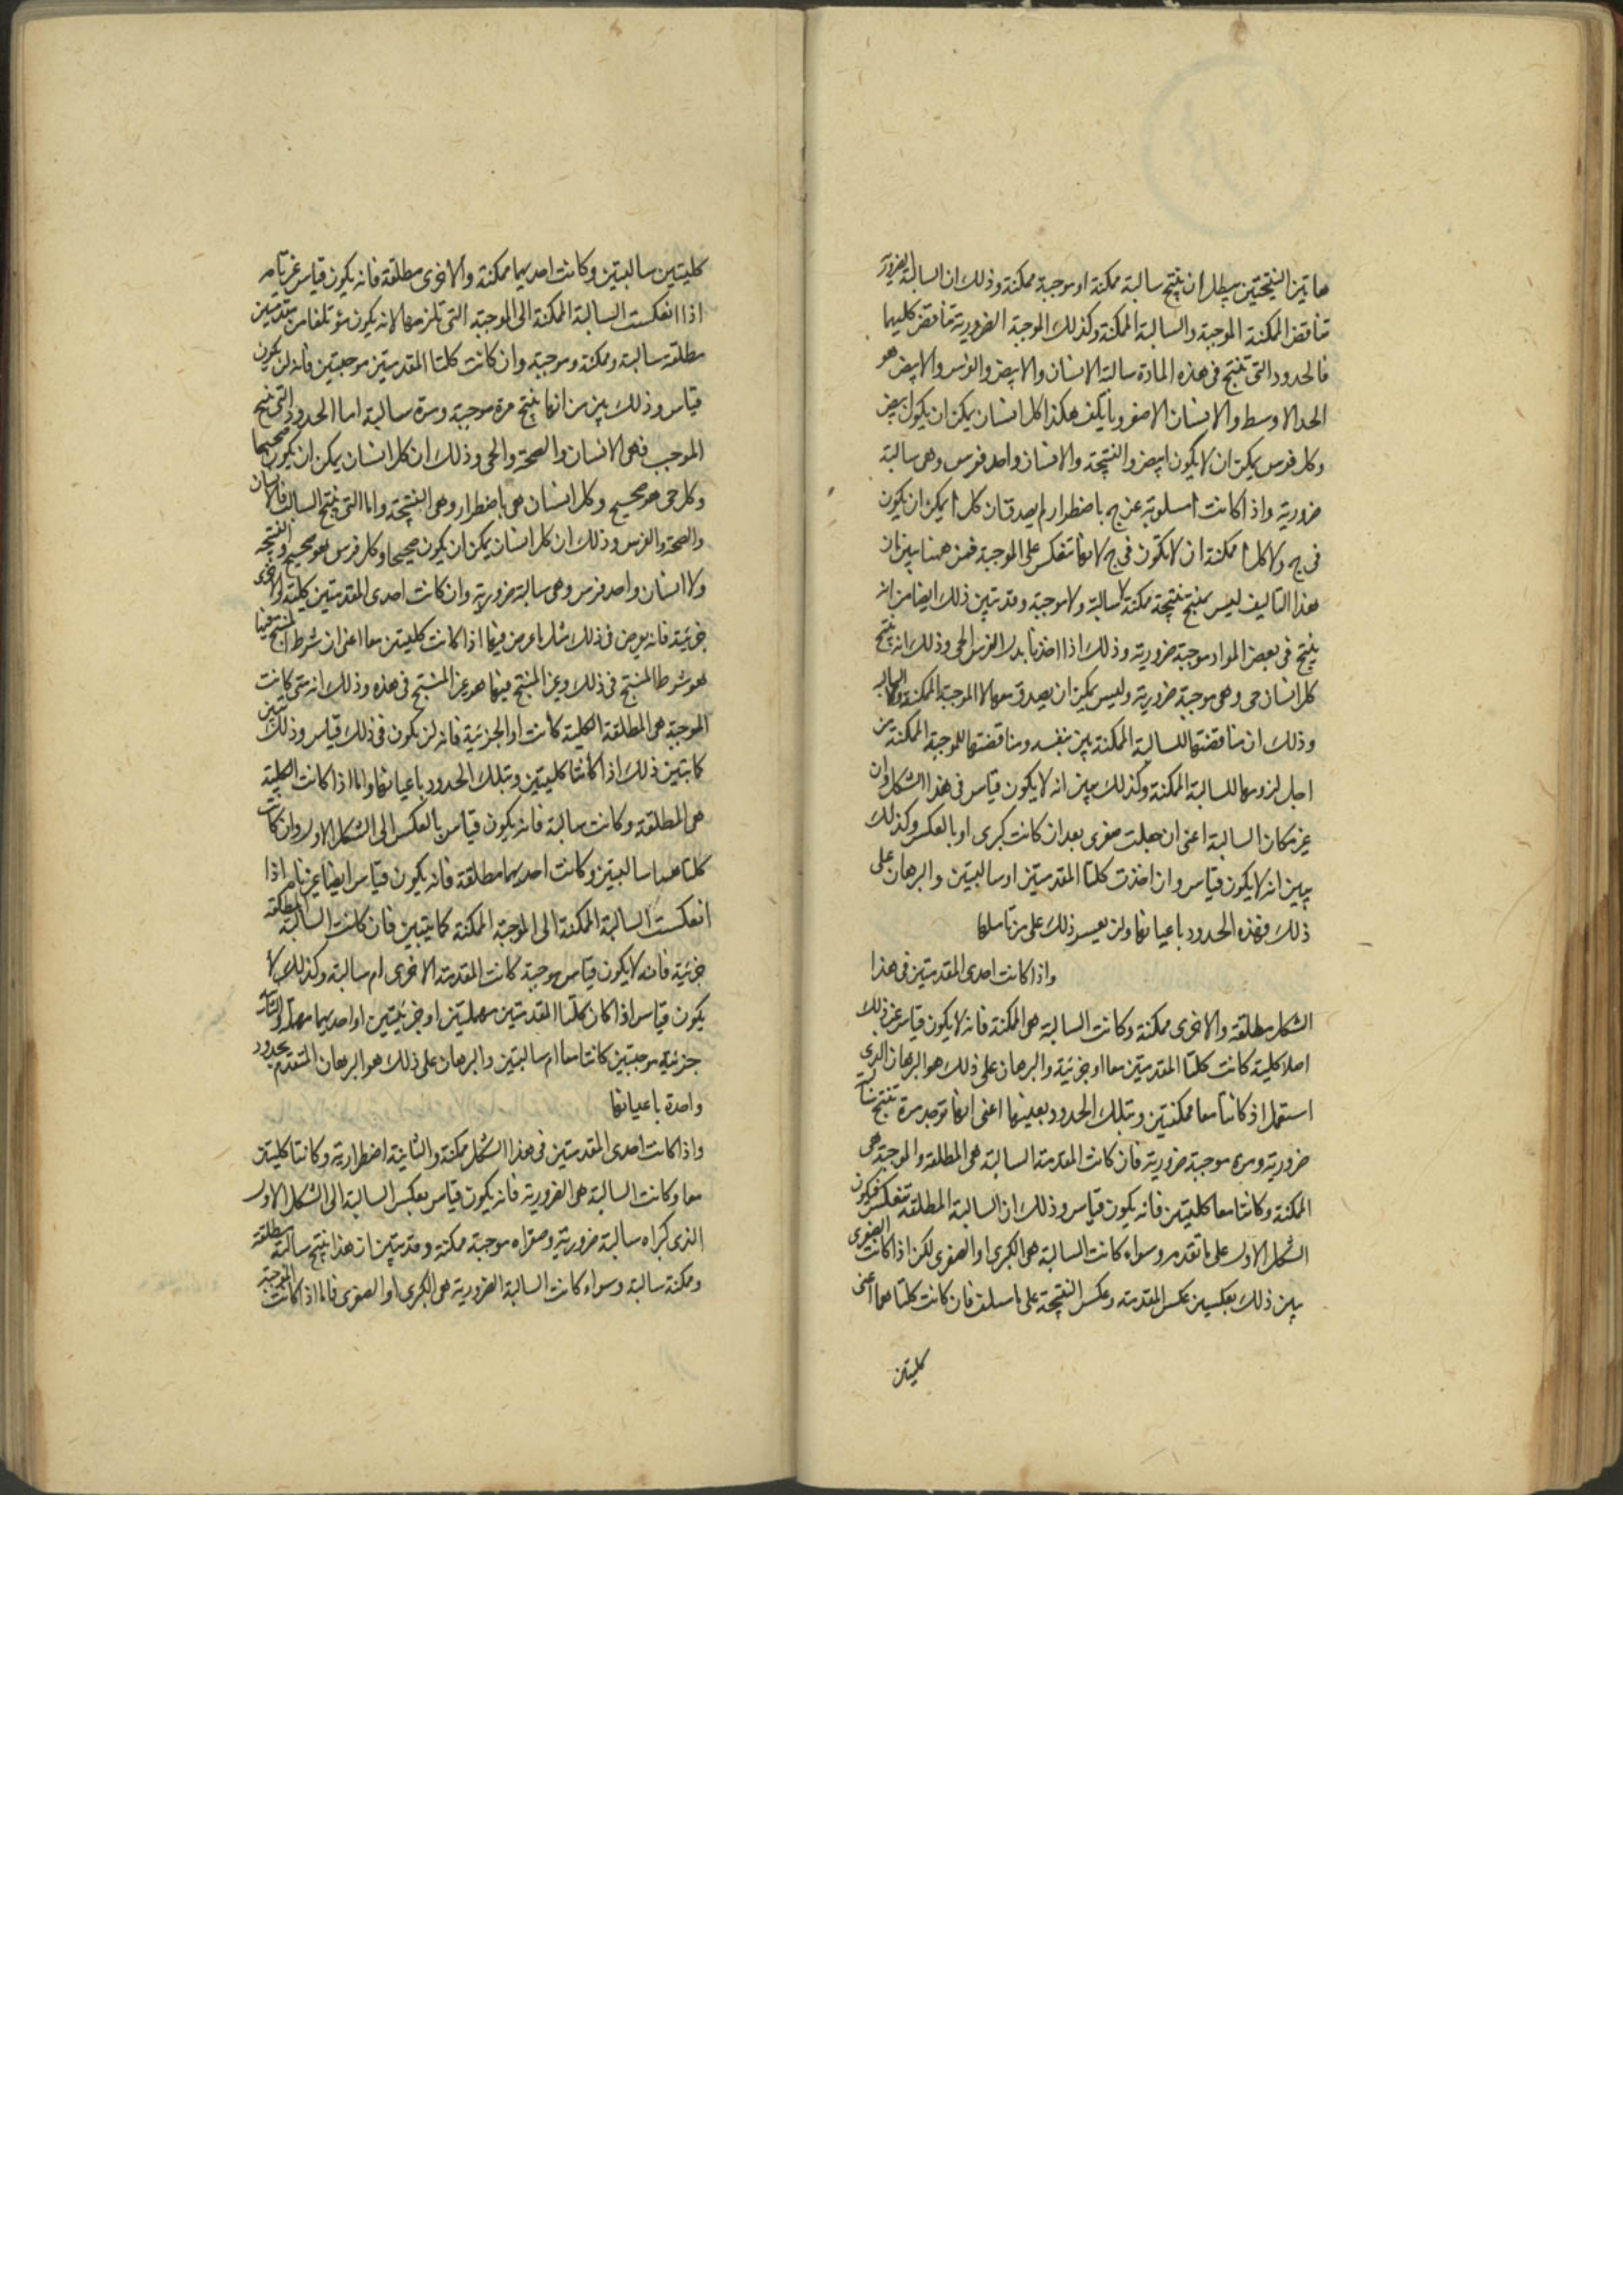 هاتين النتيجتين يبطل ان ينتج سالبة ممكنة او موجبة ممكنة وذلك ان السالبة الضرورية
تناقض الممكنة الموجبة والسالبة الممكنة وكذلك الموجبة الضرورية تناقض كليهما
فالحدود التى تنتج فى هذه المادة سالبة الانسان والابيض والفرس والابيض هو
الحد الاوسط والانسان الاصغر ويأتلف هكذا كل انسان يمكن ان يكون ابيض
وكل فرس يمكن ان لا يكون ابيض والنتيجة ولا انسان واحد فرس وهى سالبة
ضرورية واذا كانت ا مسلوبة عن ج باضطرار لم يصدق ان كل ا يمكن ان يكون
فى ج ولا كل ا ممكنة ان لا تكون فى ج لانها تنعكس على الموجبة فمن ههنا يبين ان
هذا التاليف ليس ينتج نتيجة ممكنة لا سالبة ولا موجبة وقد تبين ذلك ايضا من انه
ينتج فى بعض المواد موجبة ضرورية وذلك اذا اخذنا بدل الفرس الحى وذلك انه ينتج
كل انسان حى وهى موجبة ضرورية وليس يمكن ان يصدق معها لا الموجبة الممكنة ولا السالبة
وذلك ان مناقضتها للسالبة الممكنة بين بنفسه ومناقضتها للموجبة الممكنة من
اجل لزومها للسالبة الممكنة وكذلك يبين انه لا يكون قياس فى هذا الشكل وان
غير مكان السالبة اعنى ان جعلت صغرى بعد ان كانت كبرى او بالعكس وكذلك
يبين انه لا يكون قياس وان اخذت كلتا المقدمتين او سالبتين والبرهان على
ذلك فهذه الحدود باعيانها ولن يعسر ذلك على من تأملها
واذا كانت احدى المقدمتين فى هذا
الشكل مطلقة والاخرى ممكنة وكانت السالبة هى الممكنة فانه لا يكون قياس عن ذلك
اصلا كلية كانت كلتا المقدمتين معا او جزئية والبرهان على ذلك هو البرهان الذى
استعمل اذ كانتا معا ممكنتين وبتلك الحدود بعينها اعنى انها توجد مرة تنتج سالبة
ضرورية ومرة موجبة ضرورية فان كانت المقدمة السالبة هى المطلقة والموجبة هى
الممكنة وكانتا معا كليتين فانه يكون قياس وذلك ان السالبة المطلقة تنعكس فيكون
الشكل الاول على ما تقدم وسواء كانت السالبة هى الكبرى او الصغرى لكن اذا كانت الصغرى
يبين ذلك بعكسين عكس المقدمة وعكس النتيجة على ما سلف فان كانت كلتاهما اعنى
كليتين
كليتين سالبتين وكانت احديهما ممكنة والاخرى مطلقة فانه يكون قياس غير تام
اذا انعكست السالبة الممكنة الى الموجبة التى تلزمها لانه يكون مؤتلفا من مقدمتين
مطلقة سالبة وممكنة وموجبة وان كانت كلتا المقدمتين موجبتين فانه لن يكون
قياس وذلك بين من انها ينتج مرة موجبة ومرة سالبة اما الحدود التى تنتج
الموجب فهى الانسان والصحة والحى وذلك ان كل انسان يمكن ان يكون صحيحا
وكل حى هو صحيح وكل انسان حى باضطرار وهى النتيجة واما التى تنتج السالب فالانسان
والصحة والفرس وذلك ان كل انسان يمكن ان يكون صحيحا وكل فرس هو صحيح والنتيجة
ولا انسان واحد فرس وهى سالبة ضرورية وان كانت احدى المقدمتين كلية والاخرى
جزئية فانه يعرض فى ذلك مثل ما عرض فيها اذا كانت كليتين معا اعنى ان شرط المنتج فيها
هو شرط المنتج فى ذلك وغير المنتج فيها هو غير المنتج فى هذه وذلك انه متى كانت
الموجبة هى المطلقة الكلية كانت او الجزئية فانه لن يكون فى ذلك قياس وذلك يتبين
كما تبين ذلك اذا كانتا كليتين وبتلك الحدود باعيانها واما اذا كانت الكلية
هى المطلقة وكانت سالبة فانه يكون قياس بالعكس الى الشكل الاول وان كانت
كلتاهما سالبتين وكانت احديهما مطلقة فانه يكون قياس ايضا غير تام اذا
انعكست السالبة الممكنة الى الموجبة الممكنة كما يتبين فان كانت السالبة المطلقة
جزئية فانه لا يكون قياس موجبة كانت المقدمة الاخرى ام سالبة وكذلك لا
يكون قياس اذا كان كلتا المقدمتين مهملتين او جزئيتين او احديهما مهملة والثانية
جزئية موجبتين كانتا معا ام سالبتين والبرهان على ذلك هو البرهان المتقدم بحدود
واحدة باعيانها
واذا كانت احدى المقدمتين فى هذا الشكل ممكنة والثانية اضطرارية وكانتا كليتين
معا وكانت السالبة هى الضرورية فانه يكون قياس بعكس السالبة الى الشكل الاول
الذى كبراه سالبة ضرورية وصغراه موجبة ممكنة وقد تبين ان هذا ينتج سالبة مطلقة
وممكنة سالبة وسواء كانت السالبة الضرورية هى الكبرى او الصغرى فاما اذا كانت الموجبة